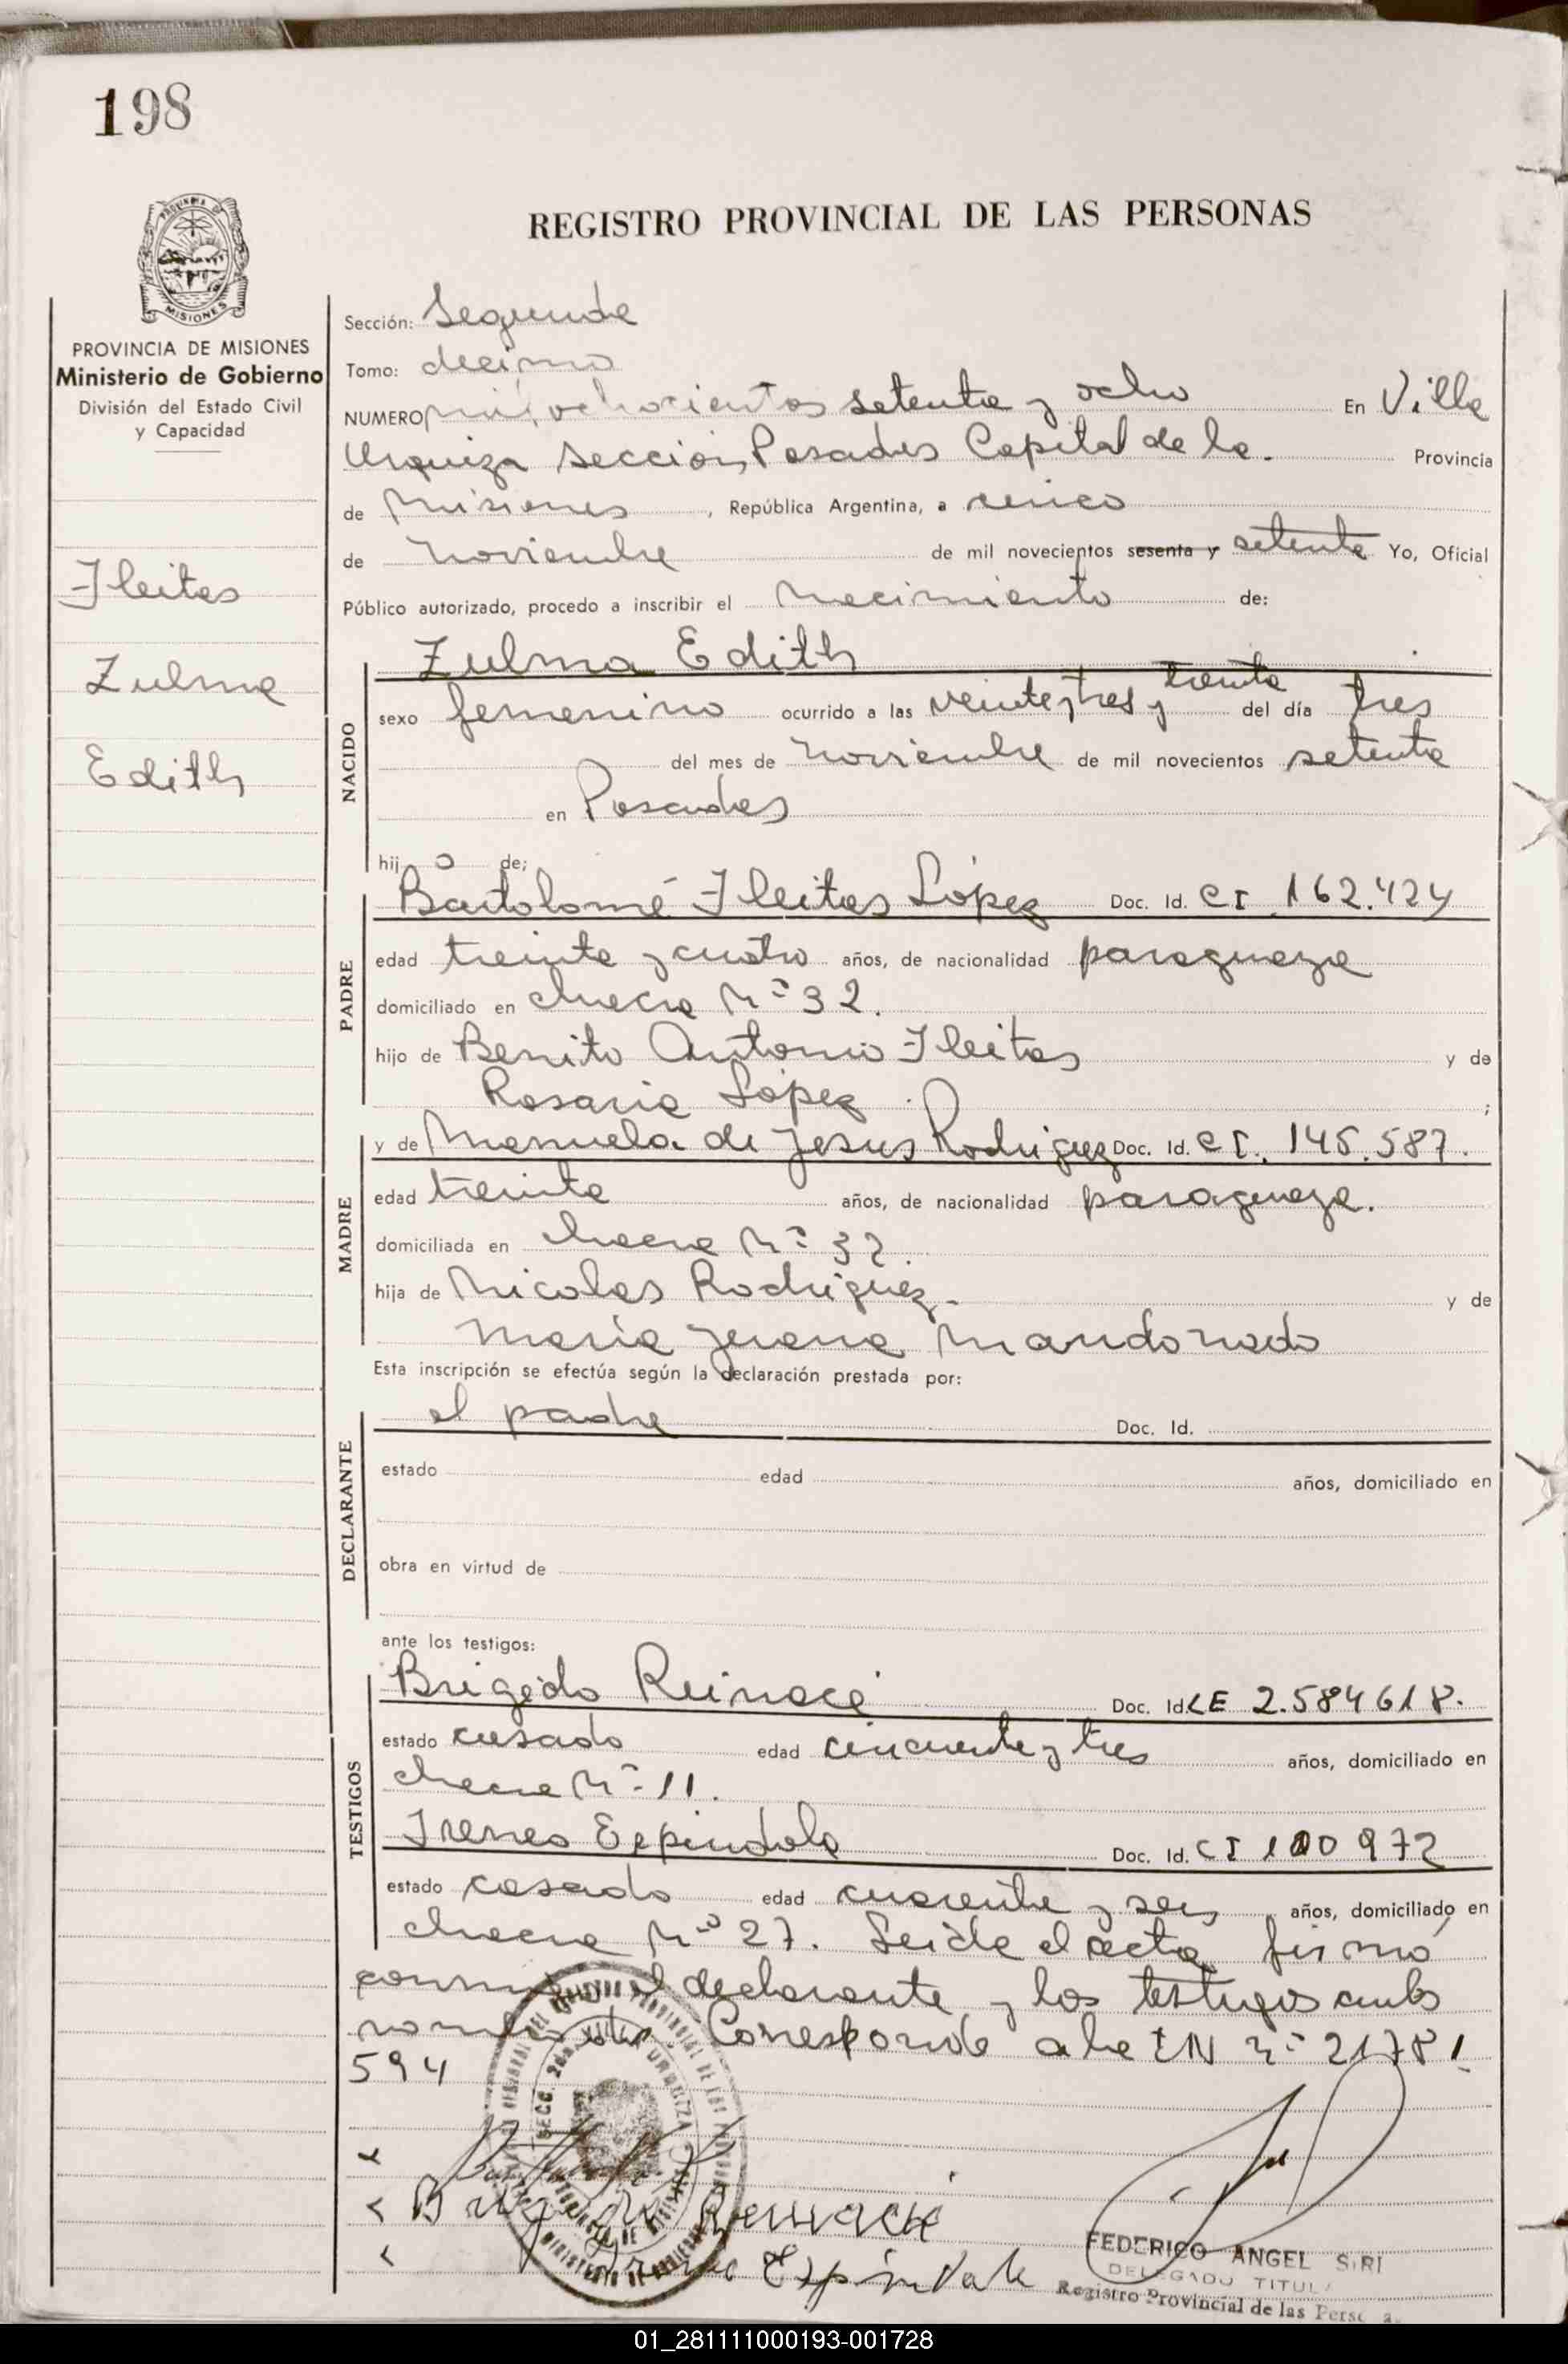 198
REGISTRO PROVINCIAL DE LAS PERSONAS
PROVINCIA DE MISIONES
Ministerio de Gobierno
División del Estado Civil
y Capacidad
Ileites
Zulma
Edith
Sección: Segunda
Tomo: decimo
NUMERO mil, ochocientos setenta y ocho En Villa
Urquiza Sección, Posadas Capital de la. Provincia
de Misiones, República Argentina, a cinco
de noviembre de mil novecientos sesenta y setenta Yo, Oficial
Público autorizado, procedo a inscribir el nacimiento de:
Zulma Edith
NACIDO
sexo femenino ocurrido a las veintetres y treinta del día tres
del mes de noviembre de mil novecientos setenta
en Posadas
hij a de;
PADRE
Bartolomé Ileites López Doc. Id. CI 162.424
edad treinta y cuatro años, de nacionalidad paraguaya
domiciliado en chacra Nº 32.
hijo de Benito Antonio Ileites y de
Rosaria López ;
MADRE
y de Manuela de Jesus Rodriguez Doc. Id. CI. 145.587.
edad treinta años, de nacionalidad paraguaya.
domiciliada en chacra Nº 32.
hija de Nicolas Rodriguez. y de
Maria
Esta inscripción se efectúa según la declaración prestada por:
DECLARANTE
el padre Doc. Id.
estado edad años, domiciliado en
obra en virtud de
ante los testigos:
TESTIGOS
Brigido Reinace Doc. Id. LE 2.584618.
estado casado edad cincuenta y tres años, domiciliado en
chacra Nº 11.
Ireneo Espindola Doc. Id. CI 100 972
estado casado edad cuarenta y seis años, domiciliado en
chacra Nº 27. Leida el acta firmó
conmigo el declarante y los testigos
Corresponde a la EN nº 21781
594
Espindola
FEDERICO ANGEL SIRI
DELEGADO TITULA
Registro Provincial de las Perso
01_281111000193-001728